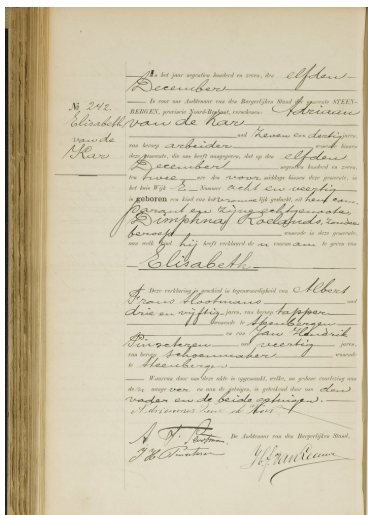 In het jaar negentien honderd en zeven, den elfden
December
No 242. Elisabeth van de Kar
In voor ons Ambtenaar van den Burgerlijken Stand der gemeente STEEN-
BERGEN, provincie Noord-Brabant, verscheen: Adriaan
van de Kar
oud zeven en dertig jaren,
van beroep arbeider wonende binnen
deze gemeente, die ons heeft aangegeven, dat op den elfden
December negentien honderd en zeven,
ten twee ure des voor middags binnen deze gemeente, in
het huis Wijk E Nummer acht en veertig
is geboren een kind van het vrouwelijk geslacht, uit hem com-
parant en zijne echtgenoote
Dimphna Roelands, zonder
beroep wonende in deze gemeente,
aan welk kind hij heeft verklaard de n voornaam te geven van
Elisabeth.
Deze verklaring is geschied in tegenwoordigheid van Albert
Frans Slootmans oud
drie en vijftig jaren, van beroep tapper
wonende te Steenbergen
en van Jan Hendrik
oud veertig jaren,
van beroep schoenmaker wonende
te Steenbergen
Waarvan door ons deze akte is opgemaakt, welke, na gedane voorlezing aan
de en aan de getuigen, is geteekend door ons den
vader en de beide getuigen.
A F Slootmans
De Ambtenaar van den Burgerlijken Stand,
J H